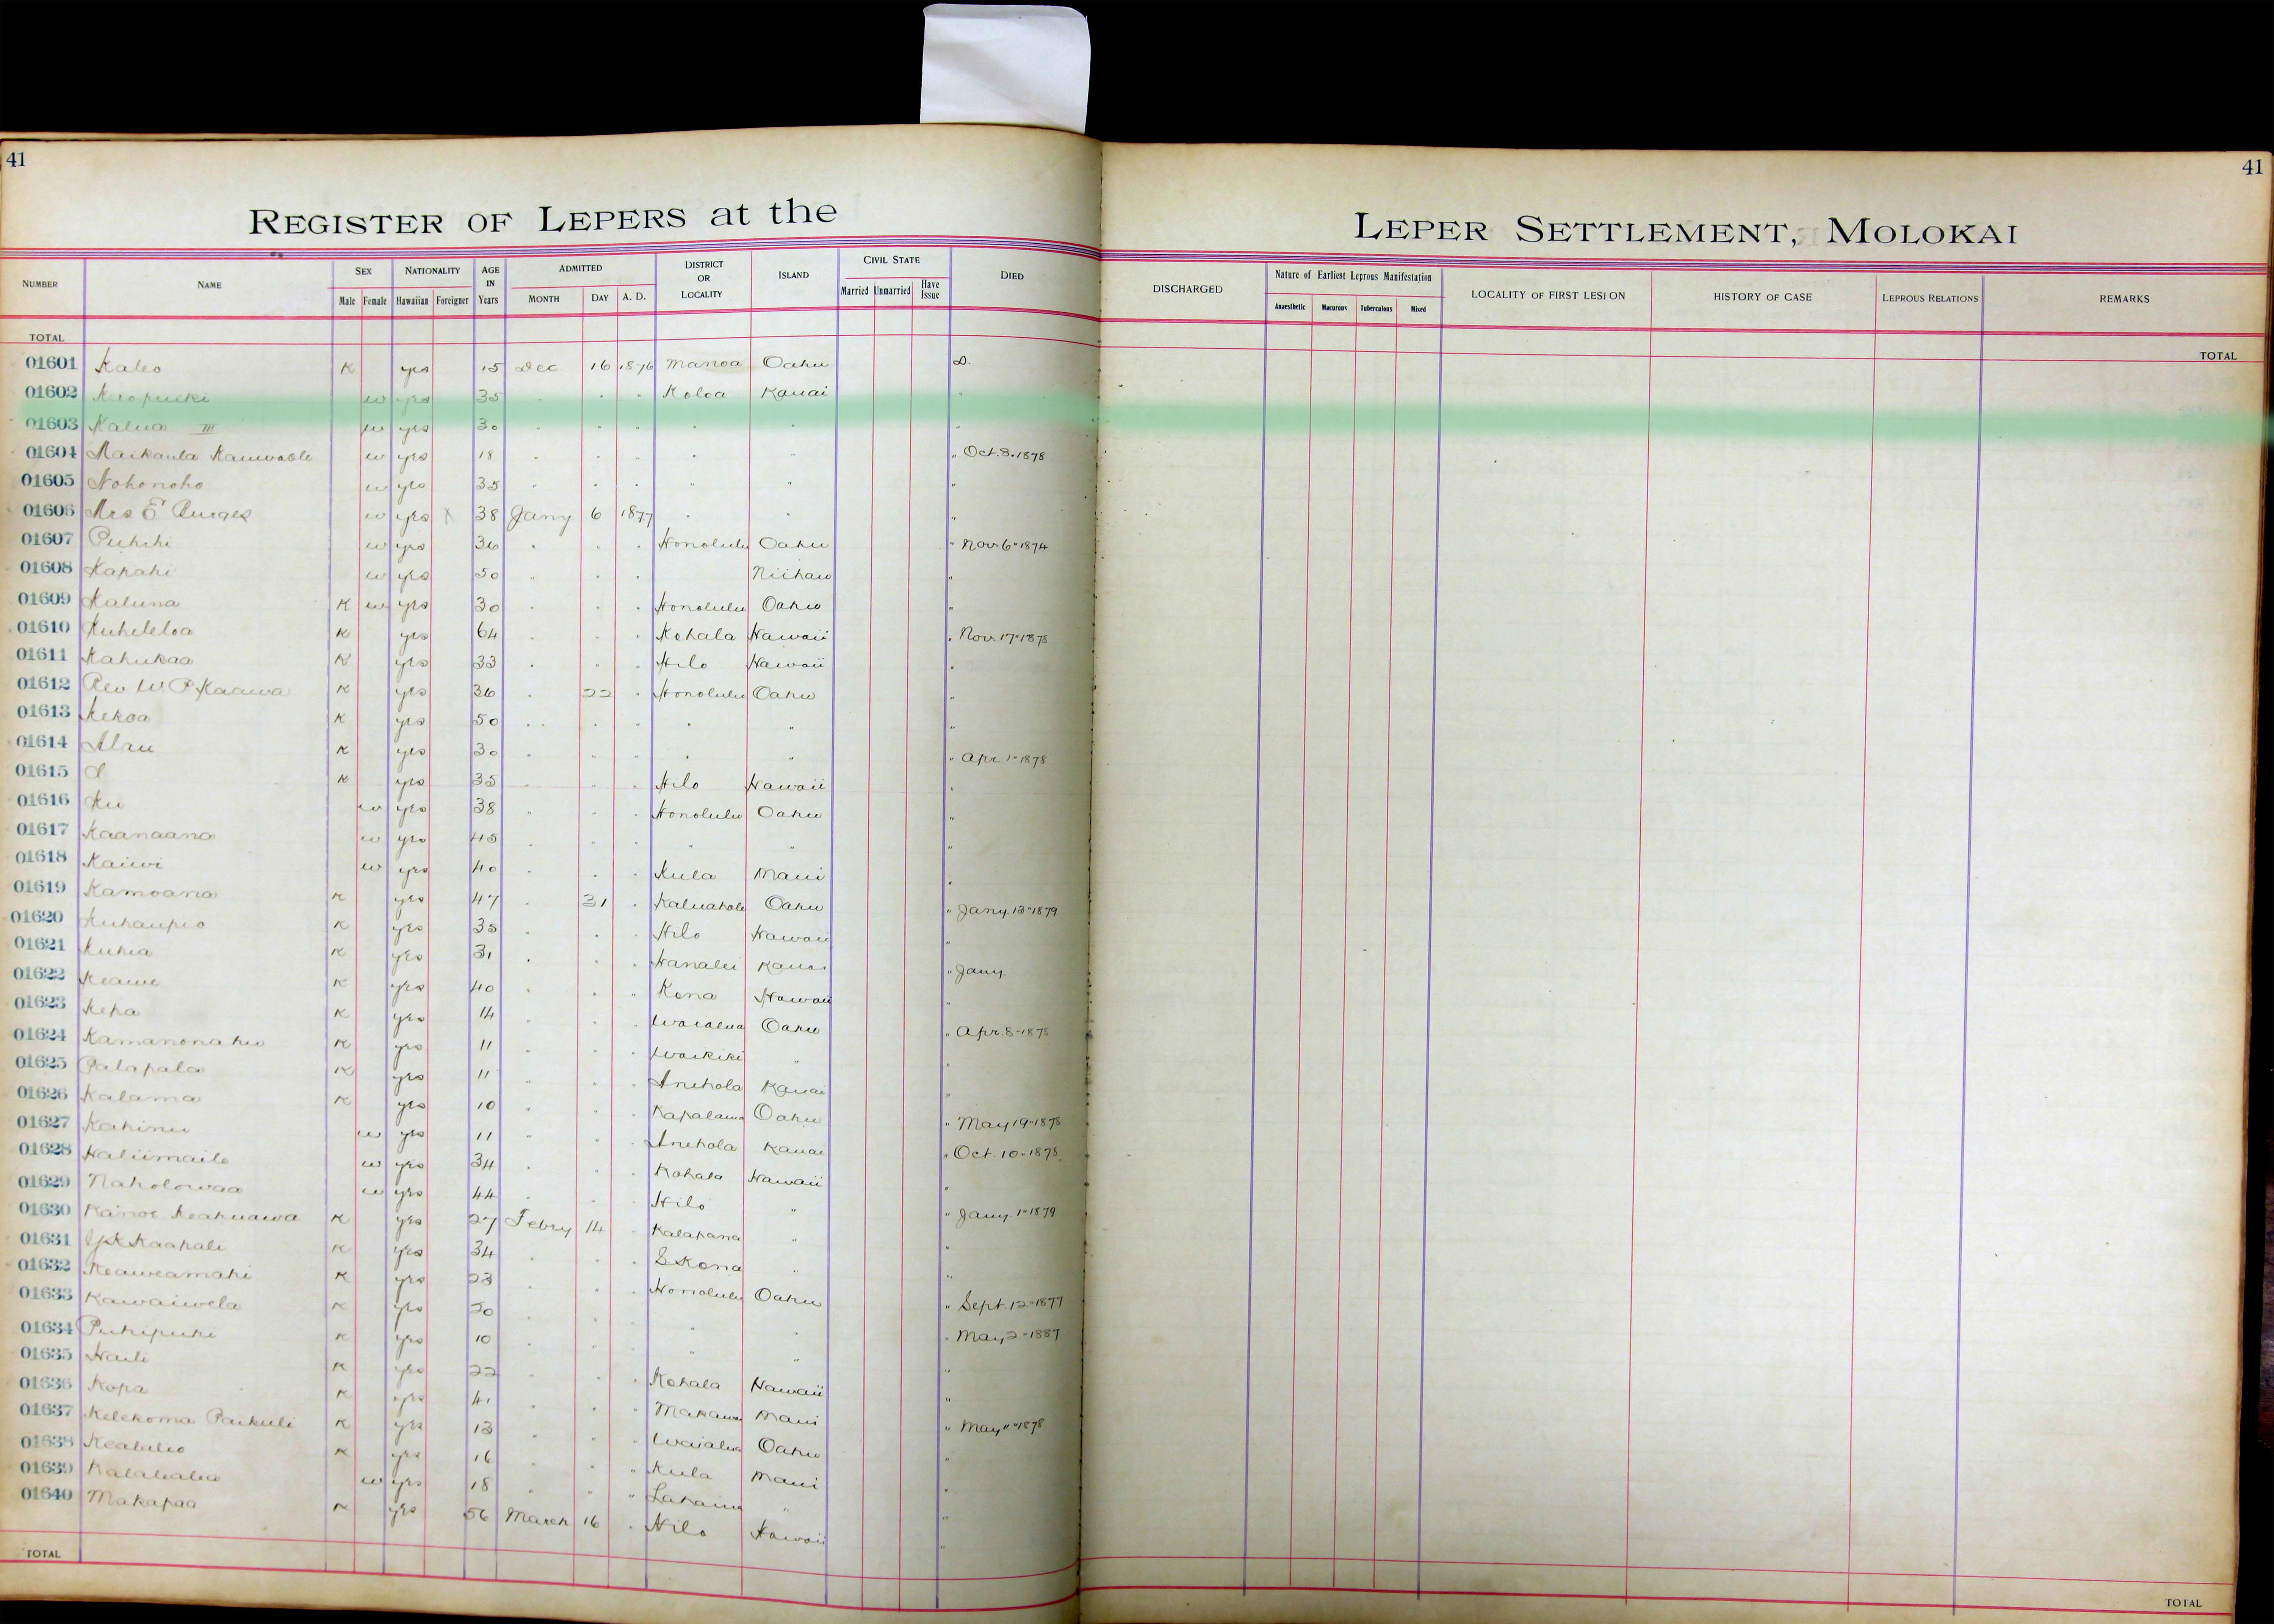 41
41
REGISTER OF LEPERS at the
LEPER SETTLEMENT, MOLOKAI
NUMBER NAME SEX Male Female NATIONALITY Hawaiian Foreigner AGE IN Years ADMITTED MONTH DAY A. D. DISTRICT OR LOCALITY ISLAND CIVIL STATE Married Unmarried Have Issue DIED
DISCHARGED Nature of Earliest Leprous Manifestation Anaesthetic Macurous Tuberculous Mixed LOCALITY OF FIRST LESION HISTORY OF CASE LEPROUS RELATIONS REMARKS
TOTAL
TOTAL
01601 Kaleo K yes 15 Dec. 16 1876 Manoa Oahu D.
01602 w yes 35 " " " Koloa Kauai "
01603 Kalua III w yes 30 " " " " " "
01604 w yes 18 " " " " " " Oct. 3. 1878
01605 Nohonoho w yes 35 " " " " " "
01606 Mrs E Burges w yes X 38 Jany 6 1877 " " "
01607 Puhihi w yes 36 " " " Honolulu Oahu " Nov 6" 1874
01608 Kapahi w yes 50 " " " Niihau "
01609 Kaluna K w yes 30 " " " Honolulu Oahu "
01610 Kuheleloa K yes 64 " " " Kohala Hawaii " Nov 17" 1878
01611 Kahukaa K yes 33 " " " Hilo Hawaii "
01612 Rev W. P. Kaawa K yes 36 " 22 " Honolulu Oahu "
01613 Kekoa K yes 50 " " " " " "
01614 Alau K yes 30 " " " " " " Apr. 1" 1878
01615 K yes 35 " " " Hilo Hawaii "
01616 Ku w yes 38 " " " Honolulu Oahu "
01617 Kaanaana w yes 45 " " " " " "
01618 Kaiwi w yes 40 " " " Kula Maui "
01619 Kamoana K yes 47 " 31 " Oahu " Jany. 13" 1879
01620 Kuhaupio K yes 35 " " " Hilo Hawaii "
01621 Kuhia K yes 31 " " " Hanalei Kauai " Jany.
01622 Keawe K yes 40 " " " Kona Hawaii "
01623 Kepa K yes 14 " " " Waialua Oahu " Apr. 8" 1878
01624 Kamanonahu K yes 11 " " " Waikiki " "
01625 Palapala K yes 11 " " " Anehola Kauai "
01626 Kalama K yes 10 " " " Kapalama Oahu " May 19" 1878
01627 Kahinu w yes 11 " " " Anehola Kauai " Oct. 10" 1878
01628 Haliimaile w yes 34 " " " Kohala Hawaii "
01629 Naholowaa w yes 44 " " " Hilo " " Jany. 1" 1879
01630 Kanoe Keahuawa K yes 27 Febry 14 " Kalapana " "
01631 Kaahale K yes 34 " " " S Kona " "
01632 Keaweamahi K yes 23 " " " Honolulu Oahu " Sept. 12" 1877
01633 Kawaiwela K yes " " " " " " May 2" 1887
01634 Puhipuhi K yes 10 " " " " " "
01635 Haili K yes 22 " " " Kohala Hawaii "
01636 Kopa K yes 41 " " " Makawao Maui " May 11" 1878
01637 Kelekoma Paikuli K yes 13 " " " Waialua Oahu "
01638 Kealalio K yes 16 " " " Kula Maui "
01639 w yes 18 " " " Lahaina " "
01640 Makapaa K yes 56 March 16 " Hilo Hawaii "
TOTAL
TOTAL